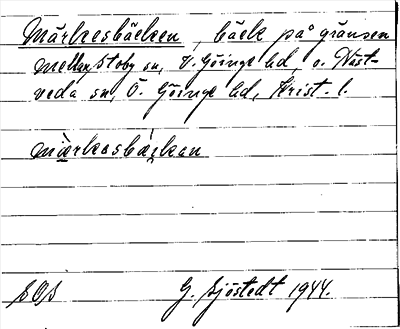 Märkesbäcken, bäck på gränsen
mellan Stoby sn, V. Göinge hd, o. Näst-
veda sn, Ö. Göinge hd, Krist. l.
mærkasbækan
G. Sjöstedt 1944.